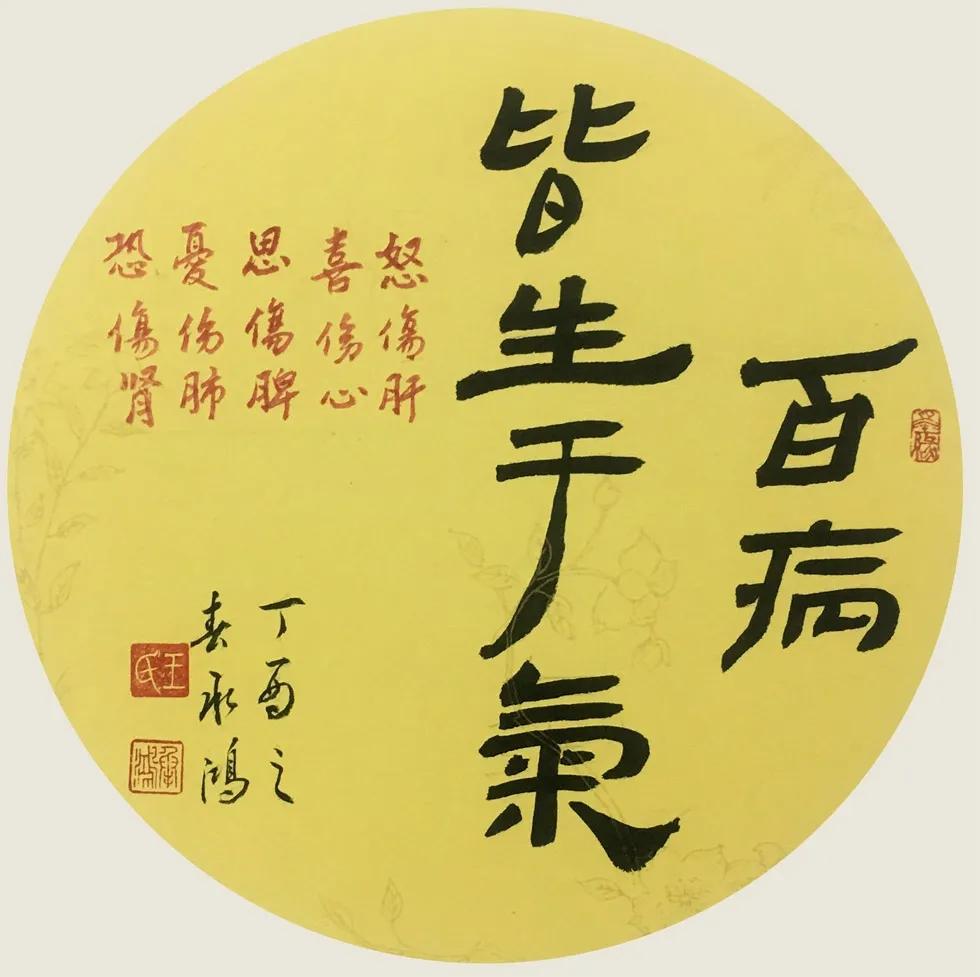 百病
皆生于氣
怒傷肝
喜傷心
思傷脾
憂傷肺
恐傷肾
丁酉之
春承鴻
王氏
承鴻